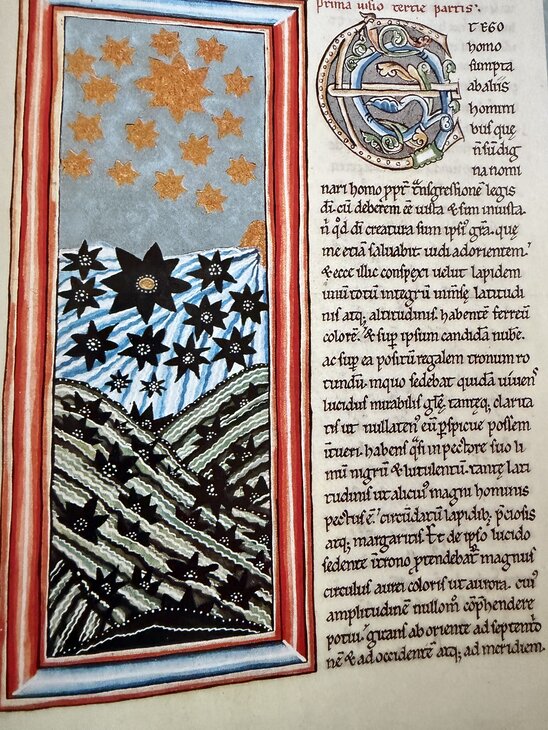 Prima uisio tertie partis.
ET EGO
homo
sumpta
abaliis
homini
bus quę
ñ sū dig
na nomi
nari homo ppt̄ t̃nsgressionē legis
dī. cū deberem eē iusta & sum iniusta.
ñ qđ dī creatura sum ipsiꝰ grā. quę
me etiā saluabit uidi ad orientem.
& ecce illic conspexi uelut lapidem
unū totū integrū inm̃sę latitudi
nis atq; altitudinis habentē ferreū
colorē. & sup̱ ipsum candidā nubē.
ac sup̱ ea positū regalem tronum ro
tundū. in quo sedebat quidā uiuens
lucidus mirabilis głę. tantęq; clarita
tis ut nullatenꝰ eū p̱spicue possem
intueri. habens q̄si in pectore suo li
mū nigrū & lutulentū. tantę lati
tudinis ut alicuiꝰ magni hominis
pectus ē. circūdatū lapidib; p̄ciosis
atq; margaritis. Et de ipso lucido
sedente ī trono p̱tendebat̄ magnus
circulus aurei coloris ut aurora. cuiꝰ
amplitudinē nullom̊ cōp̱hendere
potui. girans ab oriente ad septent̊o
nē & ad occidentē atq; ad meridiem.